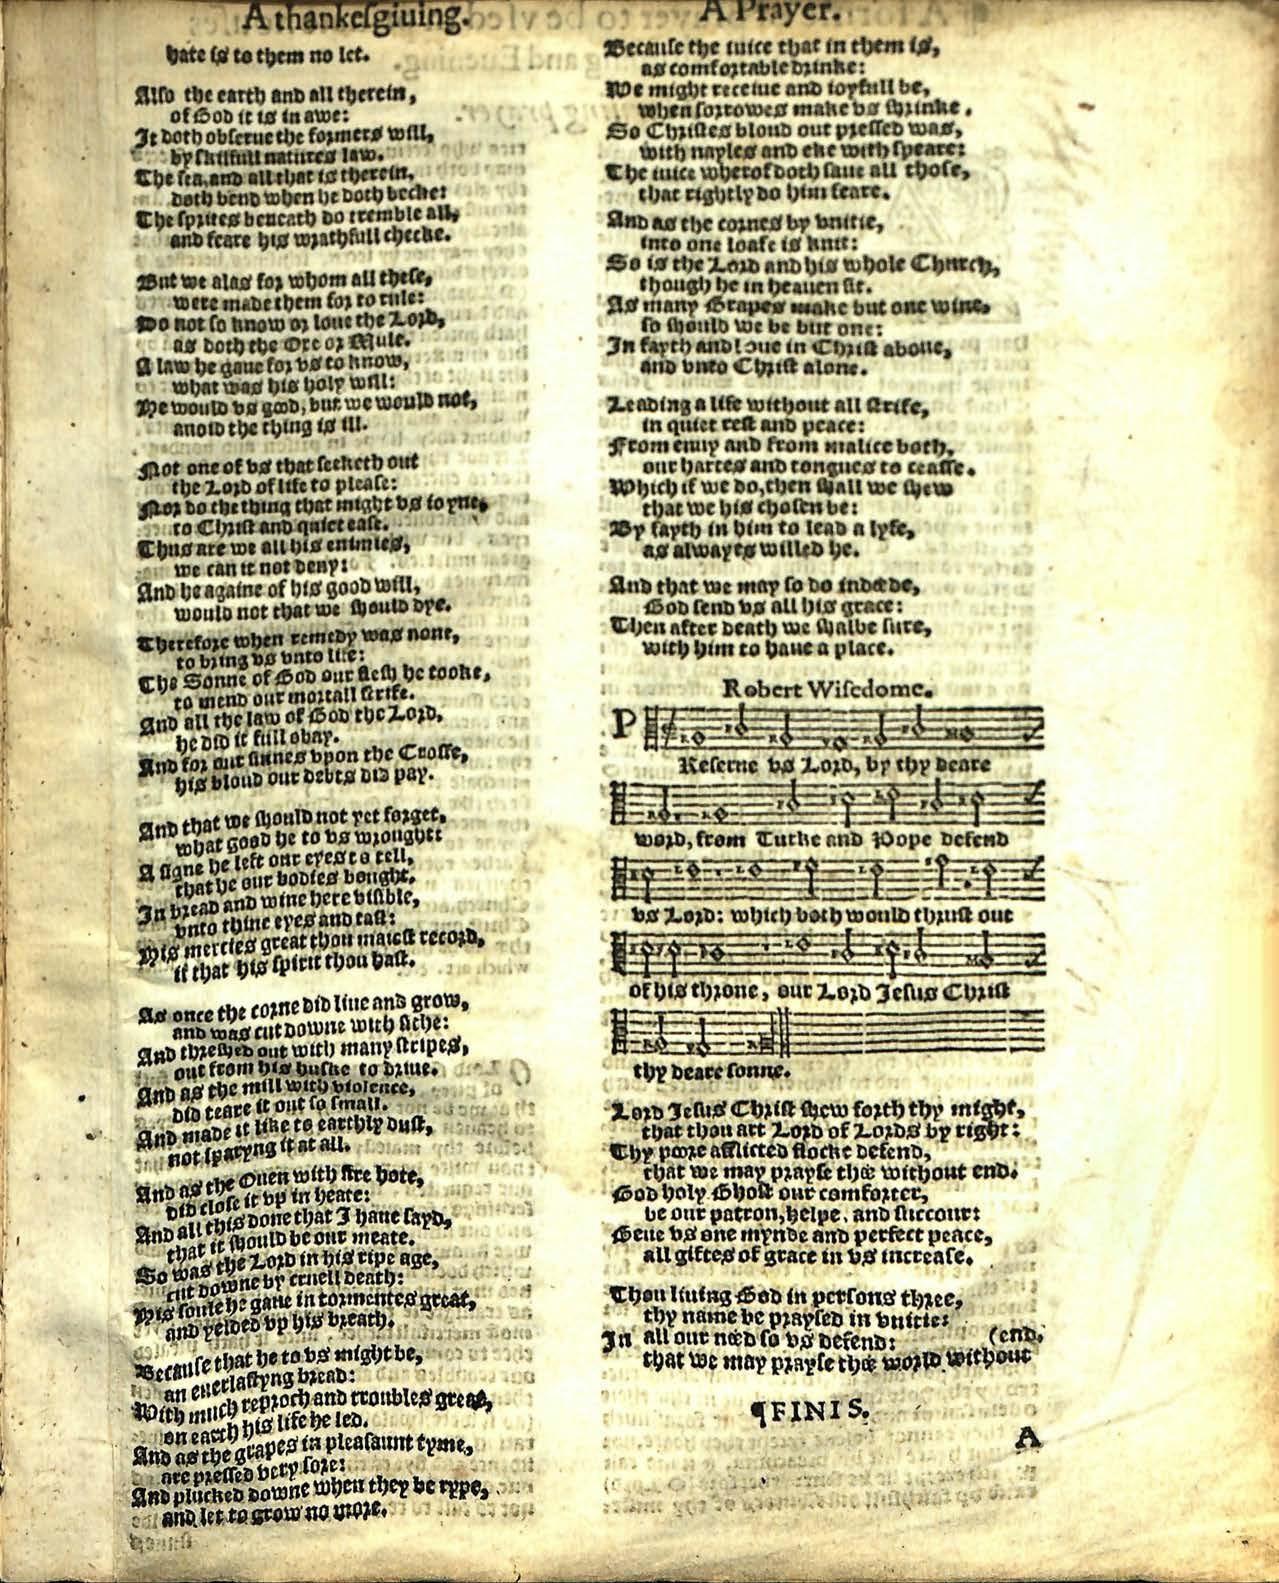 A thankesgiuing.
hate is to them no let.
Also the earth and all therein,
of God it is in awe:
It doth obserue the formers will,
by skilfull natures law.
The sea, and all that is therein,
doth bend when he doth becke:
The sprites beneath do tremble all,
and feare his wrathfull checke.
But we alas for whom all these,
were made them for to rule:
Do not so know or loue the Lord,
as doth the Oxe or Mule.
A law he gaue for vs to know,
what was his holy will:
He would vs good, but we would not,
auoid the thing is ill.
Not one of vs that seeketh out
the Lord of life to please:
Nor do the thing that might vs ioyne,
to Christ and quiet ease.
Thus are we all his enimies,
we can it not deny:
And he againe of his good will,
would not that we should dye.
Therefore when remedy was none,
to bring vs vnto life:
The Sonne of God our flesh he tooke,
to mend our mortall strife.
And all the law of God the Lord,
he did it full obay.
And for our sinnes vpon the Crosse,
his bloud our debts did pay.
And that we should not yet forget,
what good he to vs wrought:
A signe he left our eyes to tell,
that he our bodies bought.
In bread and wine here visible,
vnto thine eyes and tast:
His mercies great thou maiest record,
if that his spirit thou hast.
As once the corne did liue and grow,
and was cut downe with sithe:
And threshed out with many stripes,
out from his huske to driue.
And as the mill with violence,
did teare it out so small.
And made it like to earthly dust,
not sparyng it at all.
And as the Ouen with fire hote,
did close it vp in heate:
And all this done that I haue sayd,
that it should be our meate.
So was the Lord in his ripe age,
cut downe by cruell death:
His soule he gaue in tormentes great,
and yelded vp his breath.
Because that he to vs might be,
an euerlastyng bread:
With much reproch and troubles great,
on earth his life he led.
And as the grapes in pleasaunt tyme,
are pressed very sore:
And plucked downe when they be rype,
and let to grow no more.
A Prayer.
Because the iuice that in them is,
as comfortable drinke:
We might receiue and ioyfull be,
when sorrowes make vs shrinke.
So Christes bloud out pressed was,
with nayles and eke with speare:
The iuice wherof doth saue all those,
that rightly do him feare.
And as the cornes by vnitie,
into one loafe is knit:
So is the Lord and his whole Church,
though he in heauen sit.
As many Grapes make but one wine,
so should we be but one:
In fayth and loue in Christ aboue,
and vnto Christ alone.
Leading a life without all strife,
in quiet rest and peace:
From enuy and from malice both,
our hartes and tongues to ceasse.
Which if we do, then shall we shew
that we his chosen be:
By fayth in him to lead a lyfe,
as alwayes willed he.
And that we may so do indæde,
God send vs all his grace:
Then after death we shalbe sure,
with him to haue a place.
Robert Wisedome.
P
Reserue vs Lord, by thy deare
word, from Turke and Pope defend
vs Lord: which both would thrust out
of his throne, our Lord Jesus Christ
thy deare sonne.
Lord Jesus Christ shew forth thy might,
that thou art Lord of Lords by right:
Thy poore afflicted flocke defend,
that we may prayse thæ without end.
God holy Ghost our comforter,
be our patron, helpe, and succour:
Geue vs one mynde and perfect peace,
all giftes of grace in vs increase.
Thou liuing God in persons three,
thy name be praysed in vnitie:
In all our næd so vs defend: (end.
that we may prayse thæ world without
¶FINIS.
A